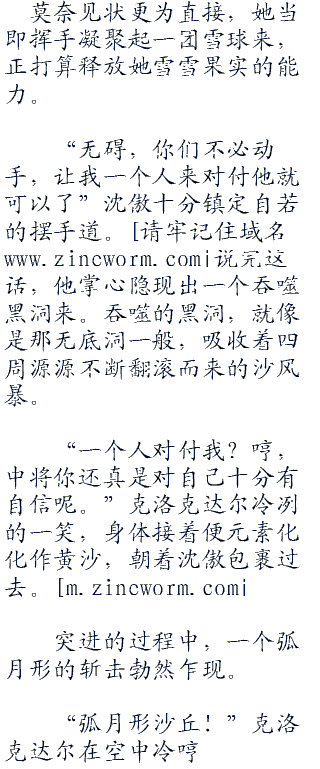 莫奈见状更为直接，她当
即挥手凝聚起一团雪球来，
正打算释放她雪雪果实的能
力。
“无碍，你们不必动
手，让我一个人来对付他就
可以了”沈傲十分镇定自若
的摆手道。[请牢记住域名
www.zincworm.com|说完这
话，他掌心隐现出一个吞噬
黑洞来。吞噬的黑洞，就像
是那无底洞一般，吸收着四
周源源不断翻滚而来的沙风
暴。
“一个人对付我？哼，
中将你还真是对自己十分有
自信呢。”克洛克达尔冷冽
的一笑，身体接着便元素化
化作黄沙，朝着沈傲包裹过
去。[m.zincworm.com|
突进的过程中，一个弧
月形的斩击勃然乍现。
“弧月形沙丘！”克洛
克达尔在空中冷哼